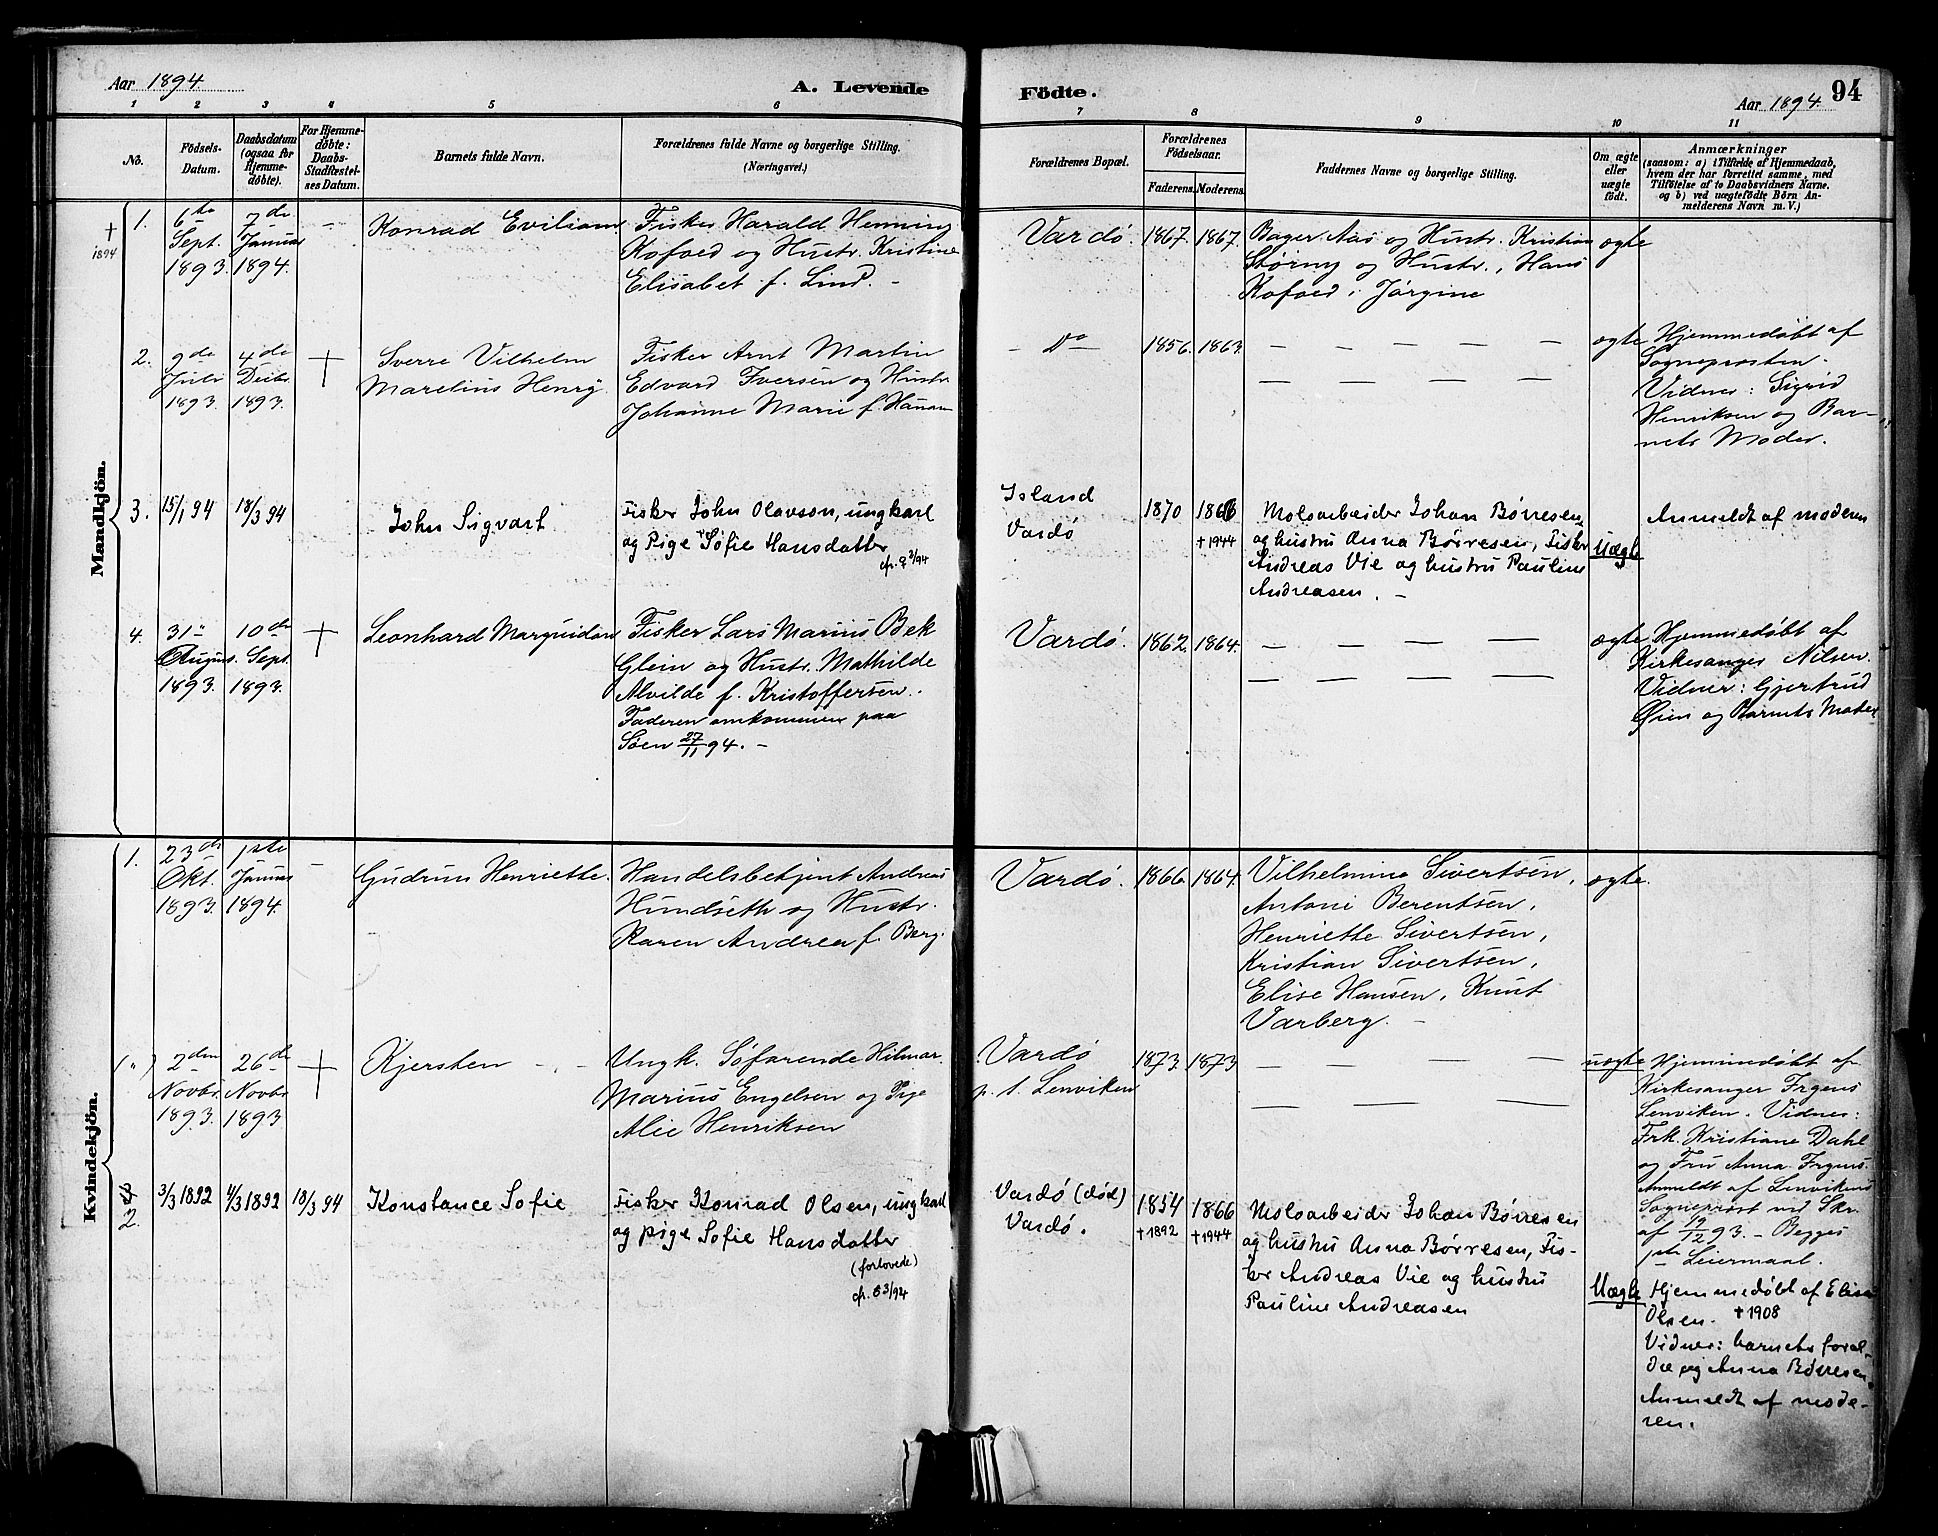 Aar 1894.
A. Levende
Födte.
Aar 1894.
94
1 2 3 4 5 6 7 8 9 10 11
No.
Födsels-
Datum.
Daabsdatum
(ogsaa for
Hjemme-
døbte).
For Hjemme-
døbte:
Daabs-
Stadfæstel-
ses Datum.
Barnets fulde Navn.
Forældrenes fulde Navne og borgerlige Stilling.
(Næringsvei.)
Forældrenes Bopæl.
Forældrenes
Födselsaar.
Faderens. Moderens.
Faddernes Navne og borgerlige Stilling.
Om ægte
eller
uægte
födt.
Anmærkninger
(saasom: a) i Tilfælde af Hjemmedaab,
hvem der har forrettet samme, med
Tilföielse af to Daabsvidners Navne.
og b) ved uægtefödte Börn An-
melderens Navn m. V.)
Mandkjön.
†
1894
1.
6te
Sept.
1893.
7de
Januar
1894.
–
Konrad Evilian
Fisker Harald Henning
Kofoed og Hustr. Kristine
Elisabet f. Lind. –
Vardö.
1867. 1867.
Bager Aas og Hustr. Kristian
Störny og Hustr., Hans
Kofoed, Jörgine
ægte
2.
9de
Juli
1893.
4de
Decbr.
1893.
†
Sverre Vilhelm
Marelius Henry.
Fisker Arnt Martin
Edvard Iversen og Hustr.
Johanne Marie f. Hansen
– Do –
1856. 1863.
– – – – –
– – – –
ægte
Hjemmedøbt af
Sogneprosten.
Vidner: Sigrid
Henriksen og Bar-
nets Moder.
3.
15/1 94
18/3 94
John Sigvart
Fisker John Olavson, ungkarl
og Pige Sofie Hansdatter
cfr. ♀ 3/94
Island
Vardö
1870 1866
† 1944
Moloarbeider Johan Börresen
og hustru Anna Börresen, Fisker
Andreas Vie og hustru Pauline
Andreasen. –
Uægte
Anmeldt af moderen
4.
31te
August
1893.
10de
Sept.
1893.
†
Leonhard Marquidan
Fisker Lars Marius Bek
Glein og Hustr. Mathilde
Alvilde f. Kristoffersen.
Faderen omkommen paa
Søen 27/11 94. –
Vardö.
1862. 1864.
– – – –
– – – –
ægte
Hjemmedøbt af
Kirkesanger Nilsen.
Vidner: Gjertrud
Øien og Barnets Moder
Kvindekjön.
1.
23de
Okt.
1893.
1ste
Januar
1894.
–
Gudrun Henriette.
Handelsbetjent Andreas
Hundseth og Hustr.
Karen Andrea f. Berg.
Vardö.
1866. 1864.
Vilhelmine Sivertsen,
Antoni Berentsen,
Henriette Sivertsen,
Kristian Sivertsen,
Elise Hansen, Knut
Varberg. –
ægte.
(„)
2den
Novbr.
1893.
26de
Novbr.
1893
†
Kjersten – . –
Ungk. Søfarende Hilmar
Marius Engelsen og Pige
Alie Henriksen
Vardö
p. t. Lenviken
1873. 1873
– – – –
– – –
uægte
Hjemmedøbt af
Kirkesanger Irgens
Lenviken. Vidner:
Frk. Kristiane Dahl
og Fru Anna Irgens.
Anmeldt af Lenvikens
Sogneprest ved Skr.
af 19/12 93. – Begges
1ste Leiermaal.
2.
3/3 1892
4/3 1892
18/3 94
Konstance Sofie
Fisker Konrad Olsen, ungkarl
og pige Sofie Hansdatter
(forlovede)
cfr. ♂ 3/94
Vardö (död)
Vardö.
1854 1866
† 1892 † 1944
Moloarbeider Johan Börresen
og hustru Anna Börresen, Fis-
ker Andreas Vie og hustru
Pauline Andreasen
Uægte
Hjemmedöbt af Elisa
Olsen. † 1908
Vidner: barnets foræl-
dre og Anna Börresen.
Anmeldt af mode-
ren.